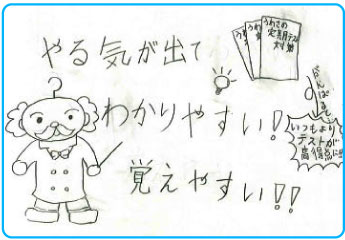 やる気が出て
わかりやすい!
覚えやすい!!
うめざめ
定期テスト
対策
がんばるぞ
いつもより
テストが
高得点に!!